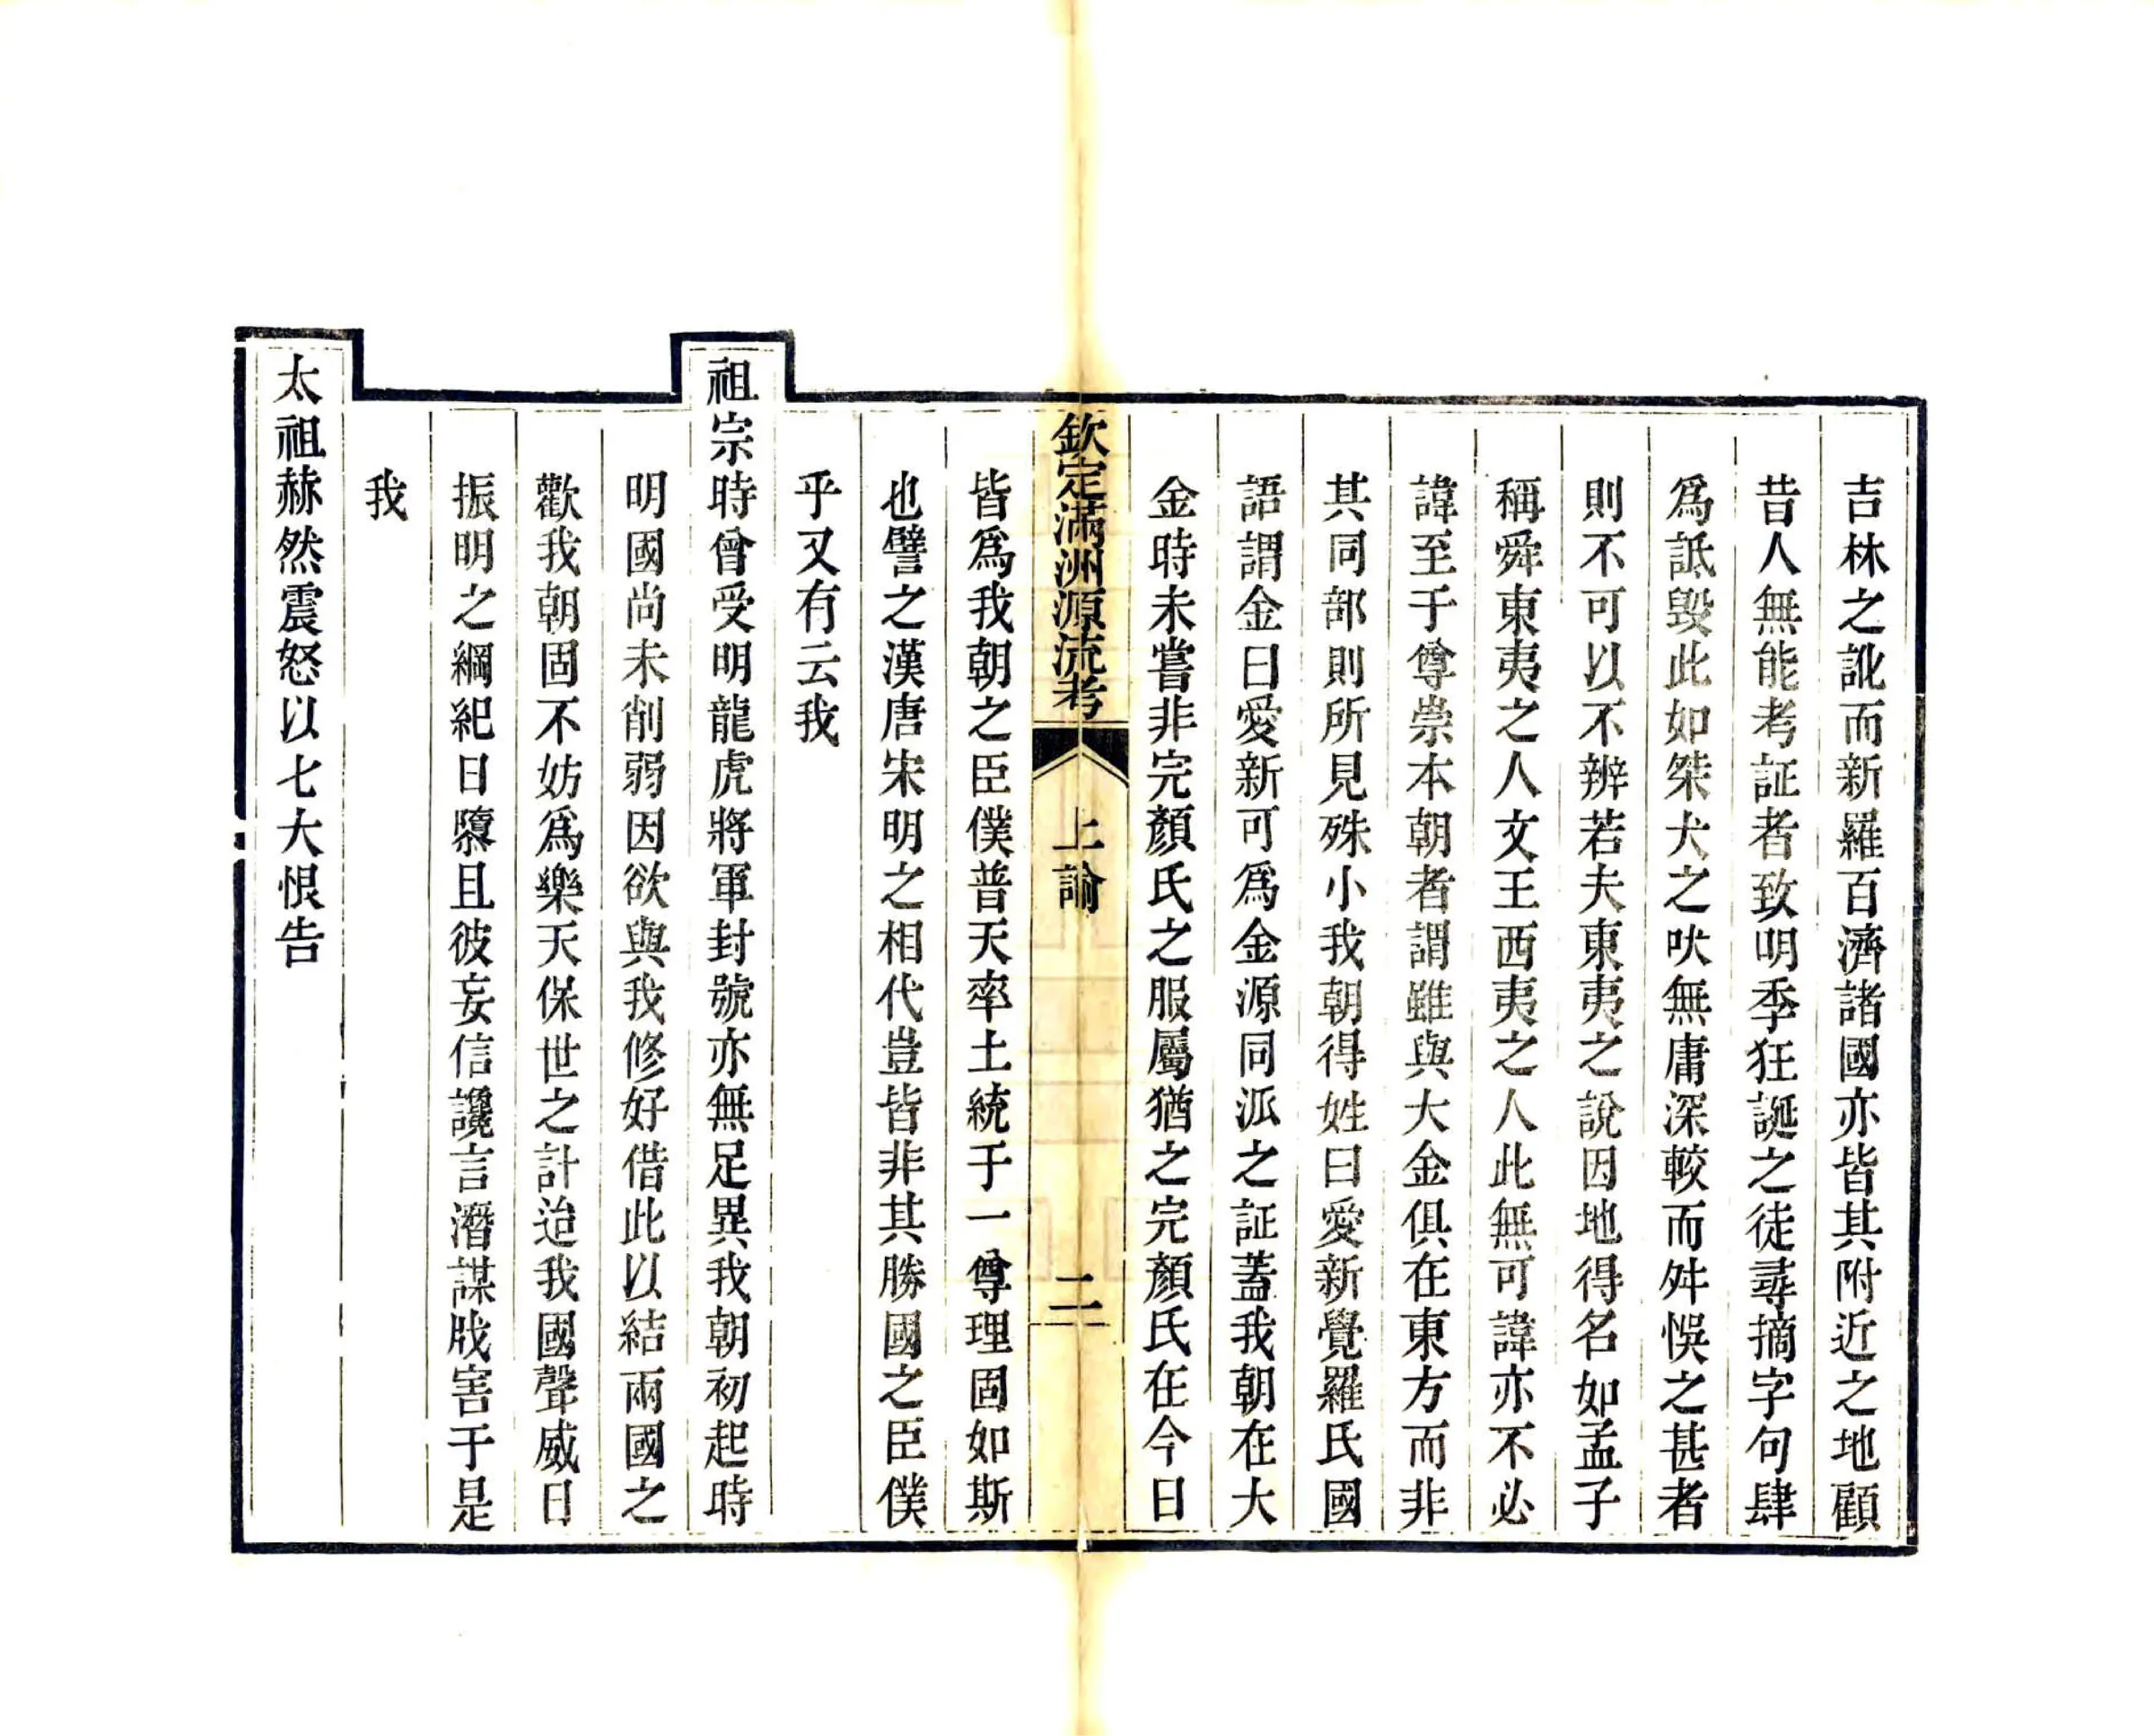 吉林之訛而新羅百濟諸國亦皆其附近之地顧
昔人無能考証者致明季狂誕之徒尋摘字句肆
爲詆毀此如桀犬之吠無庸深較而舛悞之甚者
則不可以不辨若夫東夷之說因地得名如孟子
稱舜東夷之人文王西夷之人此無可諱亦不必
諱至于尊崇本朝者謂雖與大金俱在東方而非
其同部則所見殊小我朝得姓曰愛新覺羅氏國
語謂金曰愛新可爲金源同派之証蓋我朝在大
金時未嘗非完顏氏之服屬猶之完顏氏在今日
欽定滿洲源流考 上諭 二
皆爲我朝之臣僕普天率土統于一尊理固如斯
也譬之漢唐宋明之相代豈皆非其勝國之臣僕
乎又有云我
祖宗時曾受明龍虎將軍封號亦無足異我朝初起時
明國尚未削弱因欲與我修好借此以結兩國之
歡我朝固不妨爲樂天保世之計迨我國聲威日
振明之綱紀日隳且彼妄信讒言潛謀戕害于是
我
太祖赫然震怒以七大恨告